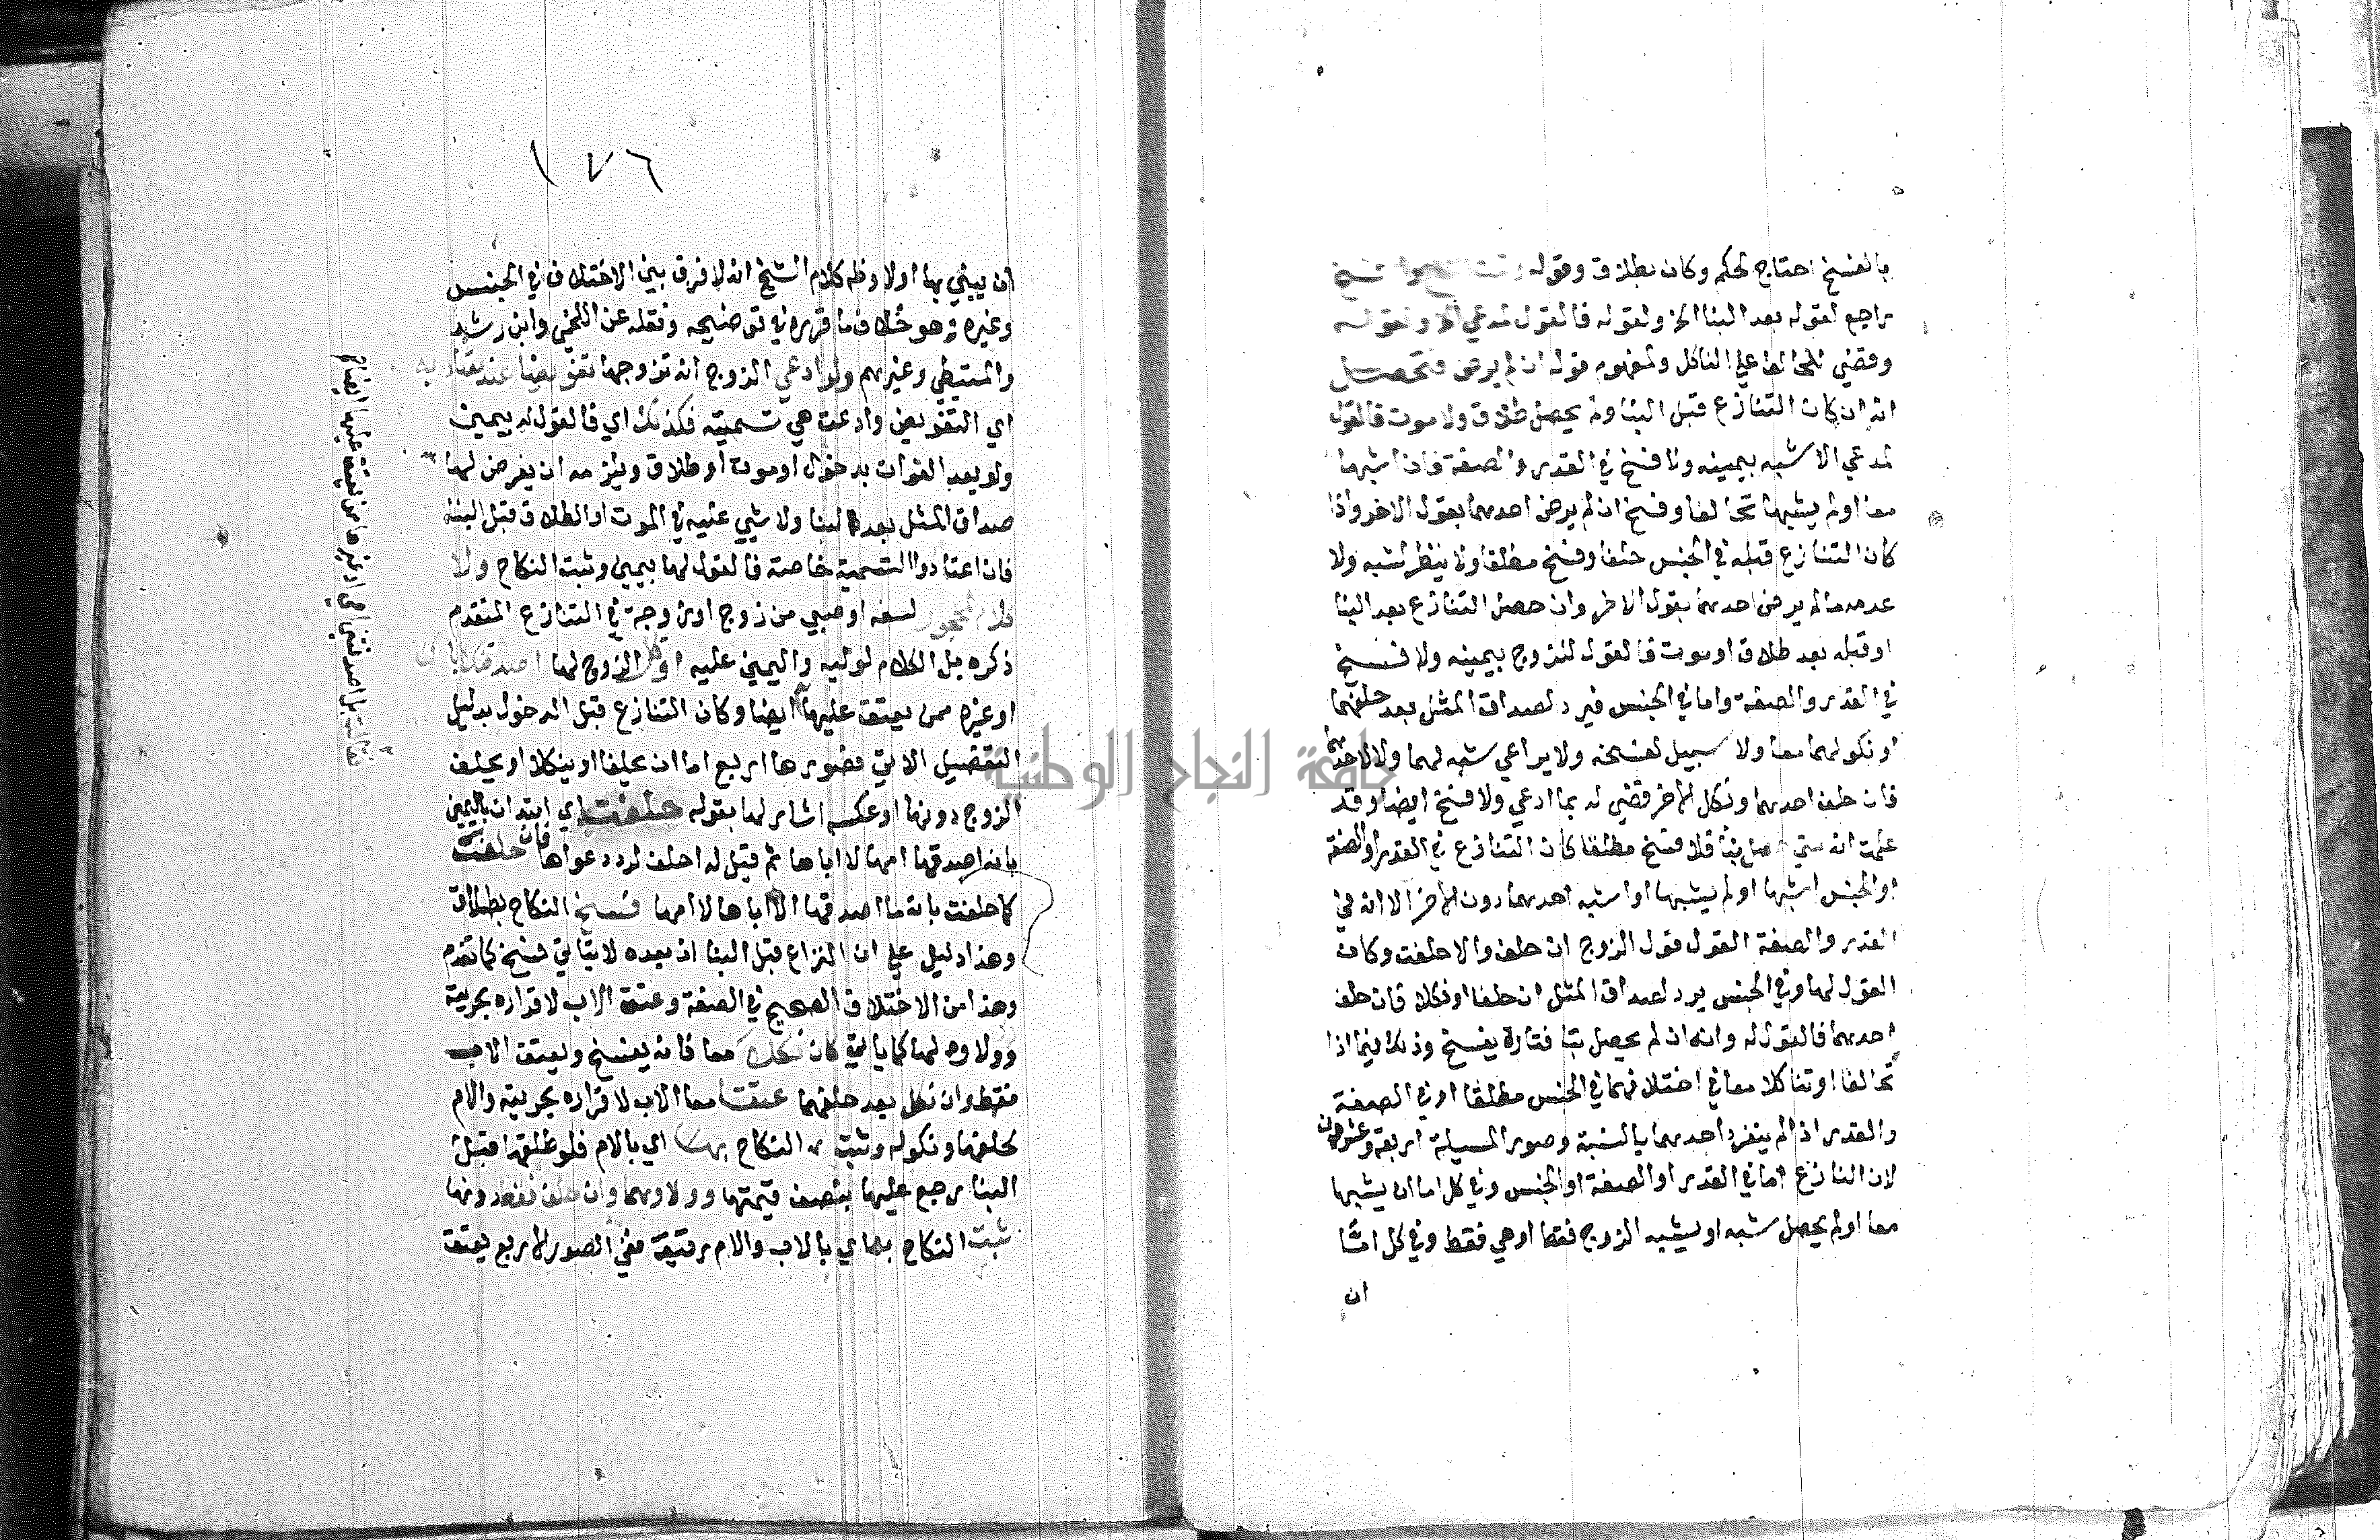 بالفسخ احتاج لحكم وكان بطلاق وقوله
راجع لقوله بعد البنا الخ ولقوله فالقول لمدعي الا ولقوله
وقضي للحالف علي الناكل ولمفهوم قوله ان لم يرض وتحصل
انه ان كان التنازع قبل البنا ولم يحصل طلاق ولا موت فالقول
لمدعي الاشبه بيمينه ولا فسخ في القدر والصفة فان اشبها
معا او لم يشبها تحالفا وفسخ ان لم يرض احدهما بقول الاخر واذا
كان التنازع قبله في الجنس حلفا وفسخ مطلقا ولا ينظر لشبه ولا
عدمه ما لم يرض احدهما بقول الاخر وان حصل التنازع بعد البنا
او قبله بعد طلاق او موت فالقول للزوج بيمينه ولا فسخ
في القدر والصفة واما في الجنس فيرد لصداق المثل بعد حلفهما
او نكولهما معا ولا سبيل لفسخه ولا يراعي شبه لهما ولا لاحدهما
فان حلف احدهما ونكل الاخر قضي له بما ادعي ولا فسخ ايضا وقد
علمت انه متي حصل بنا فلا فسخ مطلقا كان التنازع في القدر والصفة
او الجنس اشبها او لم يشبها او اشبه احدهما دون الاخر الا انه في
القدر والصفة القول قول الزوج ان حلف والا حلفت وكان
القول لها وفي الجنس يرد لصداق المثل ان حلفا او نكلا فان حلف
احدهما فالقول له وانه ان لم يحصل بنا فتارة يفسخ وذلك فيما اذا
تحالفا او تناكلا معا في اختلافهما في الجنس مطلقا او في الصفة
والقدر اذا لم ينفرد احدهما بالشبه وصور المسيلة اربعة وعشرون
لان التنازع اما في القدر او الصفة او الجنس وفي كل اما ان يشبها
معا او لم يحصل شبه او يشبه الزوج فقط او هي فقط وفي كل اما
ان
١٧٦
ان يبني بها اولا وظ كلام الشيخ انه لا فرق بين الاختلاف في الجنس
وغيره وهو خلاف ما قرره في توضيحه ونقله عن اللخمي وابن رشد
والمتيطي وغيرهم ولو ادعي الزوج انه تزوجها تفويضا عند معتاديه
اي التفويض وادعت هي تسميته فكذلك اي فالقول له بيمين
ولو بعد الفوات بدخول او موت او طلاق ويلزمه ان يفرض لها
صداق المثل بعد البنا ولا شي عليه في الموت او الطلاق قبل البنا
فان اعتادوا التسمية خاصة فالقول لها بيمين وثبت النكاح ولا
كلام لمحجور لسفه او صبي من زوج او زوجة في التنازع المتقدم
ذكره بل الكلام لوليه واليمين عليه او قال الزوج لها اصدقتك اباك
او غيره ممن يعتق عليها ايضا وكان التنازع قبل الدخول بدليل
التفصيل الاتي فصورها اربع اما ان يحلفا او ينكلا او يحلف
الزوج دونها او عكسه اشار لها بقوله حلفت اي ابتدات باليمين
بانه اصدقها امها لا اباها ثم قيل له احلف لرد دعواها فان حلف
كما حلفت بانه ما اصدقها الا اباها لا امها فسخ النكاح بطلاق
وهذا دليل علي ان النزاع قبل البنا اذ بعده لا يتاتي فسخ كما تقدم
وهذا من الاختلاف الصحيح في الصفة وعتق الاب لاقراره بحريته
وولاوه لها كما ياتي كان نكلا معا فانه يفسخ ويعتق الاب
فقط وان نكل بعد حلفها عتقا معا الاب لاقراره بحريته والام
لحلفها ونكوله وثبت النكاح بها اي بالام فلو طلقها قبل
البنا رجع عليها بنصف قيمتها وولاوهما وان حلف فقط دونها
ثبت النكاح به اي بالاب والام رقيقة ففي الصور الاربع يعتق
جامعة النجاح الوطنية